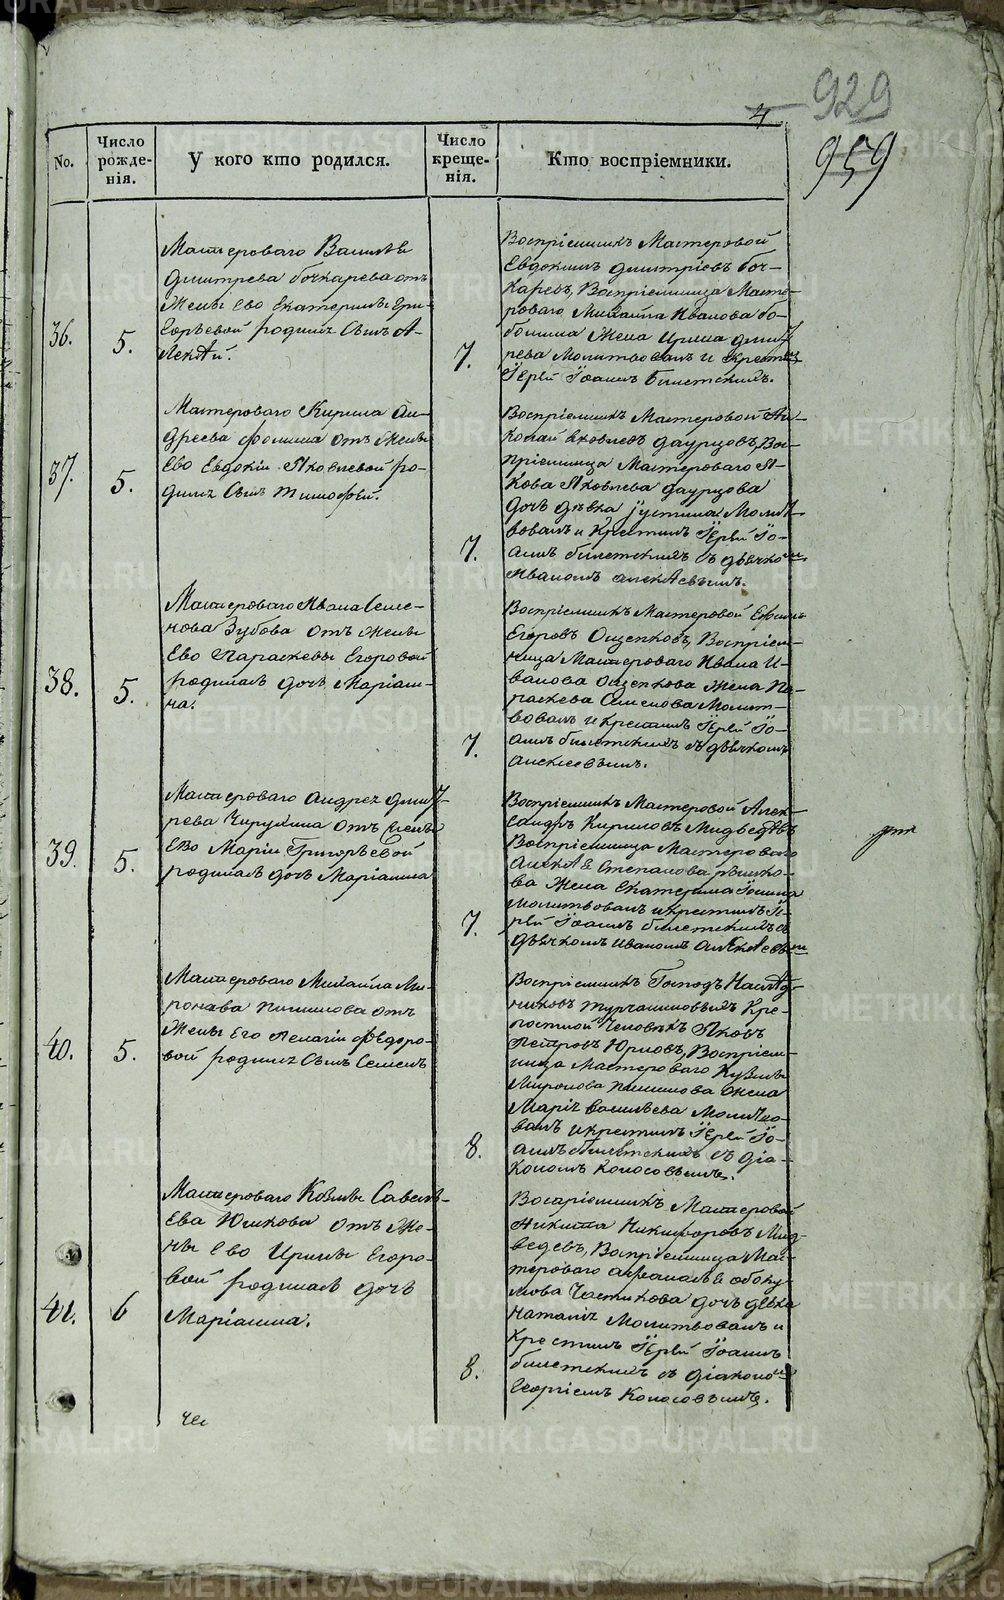 929
4
959
No.
Число рожде-нія.
У кого кто родился.
Число креще-нія.
Кто воспріемники.
36.
5.
Мастероваго Василья
Дмитрева бочкарева отъ
жены ево Екатерины Гри-
горьевой родилс сынъ А-
лекѣй.
7.
Воспріемникъ Мастеровой
Евдокимъ Дмитріевъ боч-
каревъ, Воспріемница Масте-
роваго Михаила Иванова бо-
жена Ирина Дмит-
рева Молитвовалъ и крестилъ
Іерей Іоаннъ
37.
5.
Мастероваго Кирила Ан-
дреева Фомина отъ жены
Ево Евдокіи Яковлевой ро-
дилс сынъ Тимофей.
7.
Воспріемникъ Мастеровой Ни-
колай Яковлевъ даурцовъ, Вос-
пріемница Мастероваго Я-
кова Яковлева даурцова
дочь дѣвка Іустина Молит-
вовалъ и крестилъ Іерей Іо-
аннъ съ дьячкомъ
Иваномъ
38.
5.
Мастероваго Ивана Семе-
нова Зубова отъ жены
Ево Параскевы Егоровой
родилась дочь Маріам-
на.
7.
Воспріемникъ Мастеровой
Егоровъ Ощепковъ, Воспріем-
ница Мастероваго Ивана И-
ванова Ощепкова жена Па-
раскева Семенова Молит-
вовалъ и крестилъ Іерей Іо-
аннъ съ дьячкомъ
39.
5.
Мастероваго Андрея Дмит-
рева отъ жены
Ево Маріи Григорьевой
родилась дочь Маріамна
7.
Воспріемникъ Мастеровой Алек-
сандръ Кириловъ Мидведевъ
Воспріемница Мастероваго
Степанова
ва жена Екатерина
Молитвовалъ и крестилъ Іе-
рей Іоаннъ съ
дьячкомъ Иваномъ
40.
5.
Мастероваго Михаила Ми-
ронава Пишилова отъ
жены Его Пелагіи Федоро-
вой родилс сынъ Семенъ
8.
Воспріемникъ Господъ Наслѣд-
никовъ Турчаниновыхъ Кре-
постной Человѣкъ Яковъ
Петровъ Юрловъ, Воспріем-
ница Мастероваго Кузмы
Миронова Пишилова жена
Маріч Васильева Молитво-
валъ и крестилъ Іерей Іо-
аннъ съ діа-
кономъ Колосовымъ.
41.
6
Мастероваго Козмы Савель-
Ева Юшкова отъ же-
ны Ево Ирины Егоро-
вой родилась дочь
Маріамна.
8.
Воспріемникъ Мастеровой
Никита Никифоровъ Мид-
ведевъ, Воспріемница Мас-
тероваго
мова Частикова дочь девка
Наталіч Молитвовалъ и
крестилъ Іерей Іоаннъ
съ діакономъ
Георгіемъ Колосовымъ.
METRIKI.GASO-URAL.RU